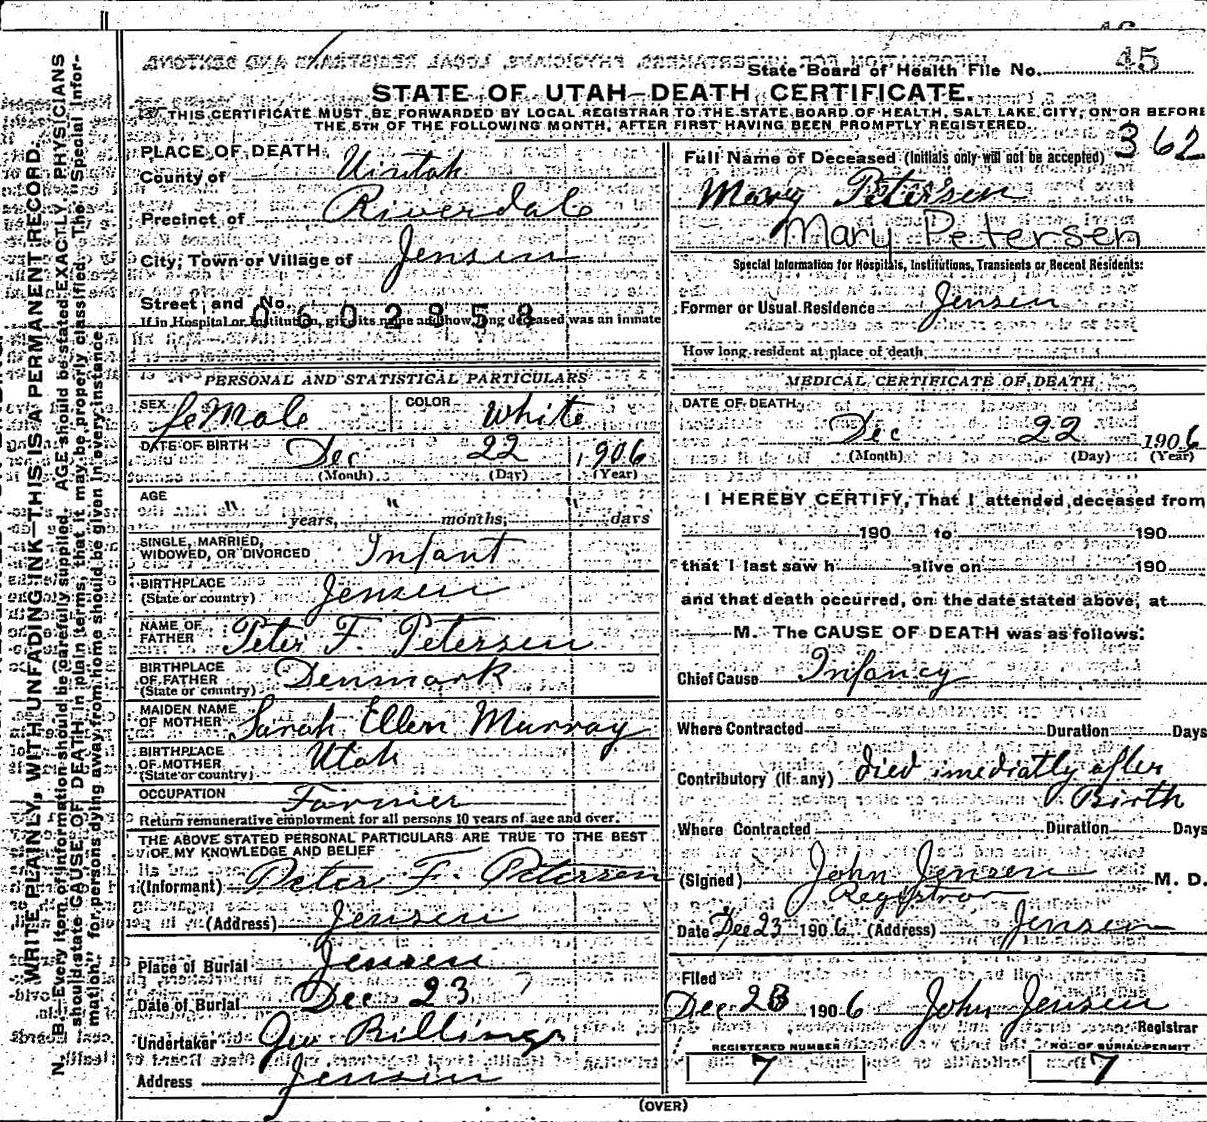 45
State Board of Health File No.
STATE OF UTAH—DEATH CERTIFICATE.
THIS CERTIFICATE MUST BE FORWARDED BY LOCAL REGISTRAR TO THE STATE BOARD OF HEALTH, SALT LAKE CITY, ON OR BEFORE
THE 5TH OF THE FOLLOWING MONTH, AFTER FIRST HAVING BEEN PROMPTLY REGISTERED.
WRITE PLAINLY, WITH UNFADING INK—THIS IS A PERMANENT RECORD.
N. B.—Every item of information should be carefully supplied. AGE should be stated EXACTLY. PHYSICIANS
should state CAUSE OF DEATH in plain terms, that it may be properly classified. The "Special Infor-
mation" for persons dying away from home should be given in every instance.
PLACE OF DEATH
County of Uintah
Precinct of Riverdale
City, Town or Village of Jensen
Street and No.
0602858
If in Hospital or Institution, give its name and how long deceased was an inmate
PERSONAL AND STATISTICAL PARTICULARS
SEX feMale COLOR White
DATE OF BIRTH Dec 22 1906
(Month) (Day) (Year)
AGE " years, " months, " days
SINGLE, MARRIED,
WIDOWED, OR DIVORCED Infant
BIRTHPLACE
(State or country) Jensen
NAME OF
FATHER Peter F. Petersen
BIRTHPLACE
OF FATHER
(State or country) Denmark
MAIDEN NAME
OF MOTHER Sarah Ellen Murray
BIRTHPLACE
OF MOTHER
(State or country) Utah
OCCUPATION Farmer
Return remunerative employment for all persons 10 years of age and over.
THE ABOVE STATED PERSONAL PARTICULARS ARE TRUE TO THE BEST
OF MY KNOWLEDGE AND BELIEF
(Informant) Peter F. Petersen
(Address) Jensen
Place of Burial Jensen
Date of Burial Dec 23
Undertaker Geo Billings
Address Jensen
362
Full Name of Deceased (Initials only will not be accepted)
Mary Petersen
Mary Petersen
Special Information for Hospitals, Institutions, Transients or Recent Residents:
Former or Usual Residence Jensen
How long resident at place of death
MEDICAL CERTIFICATE OF DEATH
DATE OF DEATH
Dec 22 1906
(Month) (Day) (Year)
I HEREBY CERTIFY, That I attended deceased from
190 to 190
that I last saw h alive on 190
and that death occurred, on the date stated above, at
M. The CAUSE OF DEATH was as follows:
Chief Cause Infancy
Where Contracted Duration Days
Contributory (if any) died imediatly after
Birth
Where Contracted Duration Days
(Signed) John Jensen M. D.
Registrar
Date Dec 23 1906 (Address) Jensen
Filed
Dec 23 1906 John Jensen
Registrar
REGISTERED NUMBER NO. OF BURIAL PERMIT
7 7
(OVER)